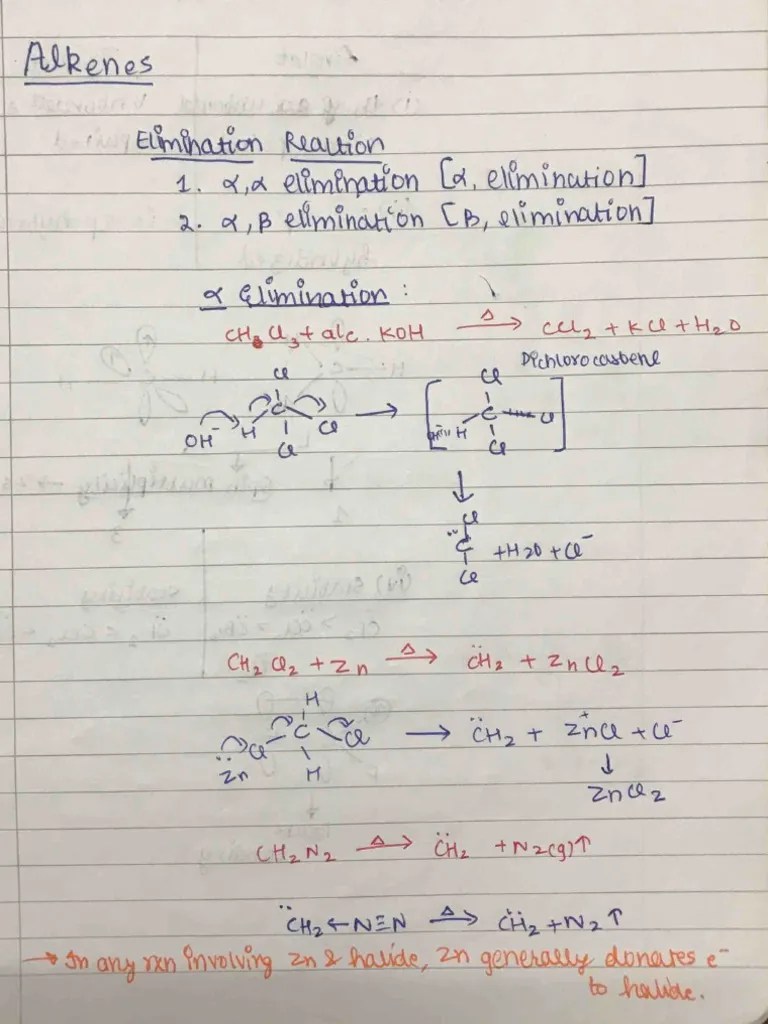 Alkenes
Elimination Reaction
1. α,α elimination [α, elimination]
2. α,β elimination [β, elimination]
α Elimination :
CHCl₃ + alc. KOH —Δ→ CCl₂ + KCl + H₂O
Dichlorocarbene
Cl Cl
OH⁻ H C Cl → [H C Cl]
Cl Cl
↓
Cl
C̈ + H2O + Cl⁻
Cl
CH₂Cl₂ + Zn —Δ→ C̈H₂ + ZnCl₂
H
Z̈n Cl C Cl → C̈H₂ + Zn⁺Cl + Cl⁻
H ↓
ZnCl₂
CH₂N₂ —Δ→ C̈H₂ + N₂(g)↑
C̈H₂←N≡N —Δ→ C̈H₂ + N₂↑
→ In any rxn involving Zn & halide, Zn generally donates e⁻
to halide.